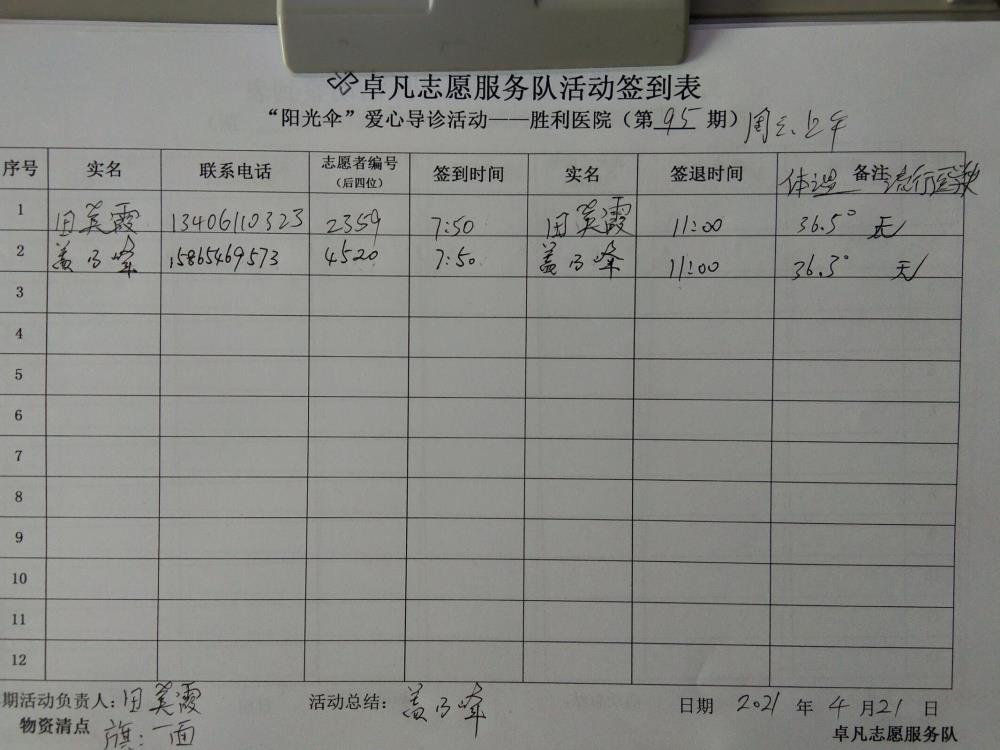 卓凡志愿服务队活动签到表
“阳光伞”爱心导诊活动——胜利医院（第 95 期）周三、上午
序号 实名 联系电话 志愿者编号（后四位） 签到时间 实名 签退时间 体温 备注 流行医教
1 田英霞 13406110323 2359 7:50 田英霞 11:00 36.5° 无
2 盖乃峰 15865469573 4520 7:50 盖乃峰 11:00 36.3° 无
3
4
5
6
7
8
9
10
11
12
期活动负责人：田英霞 活动总结：盖乃峰 日期 2021 年 4 月 21 日
物资清点 旗：一面 卓凡志愿服务队